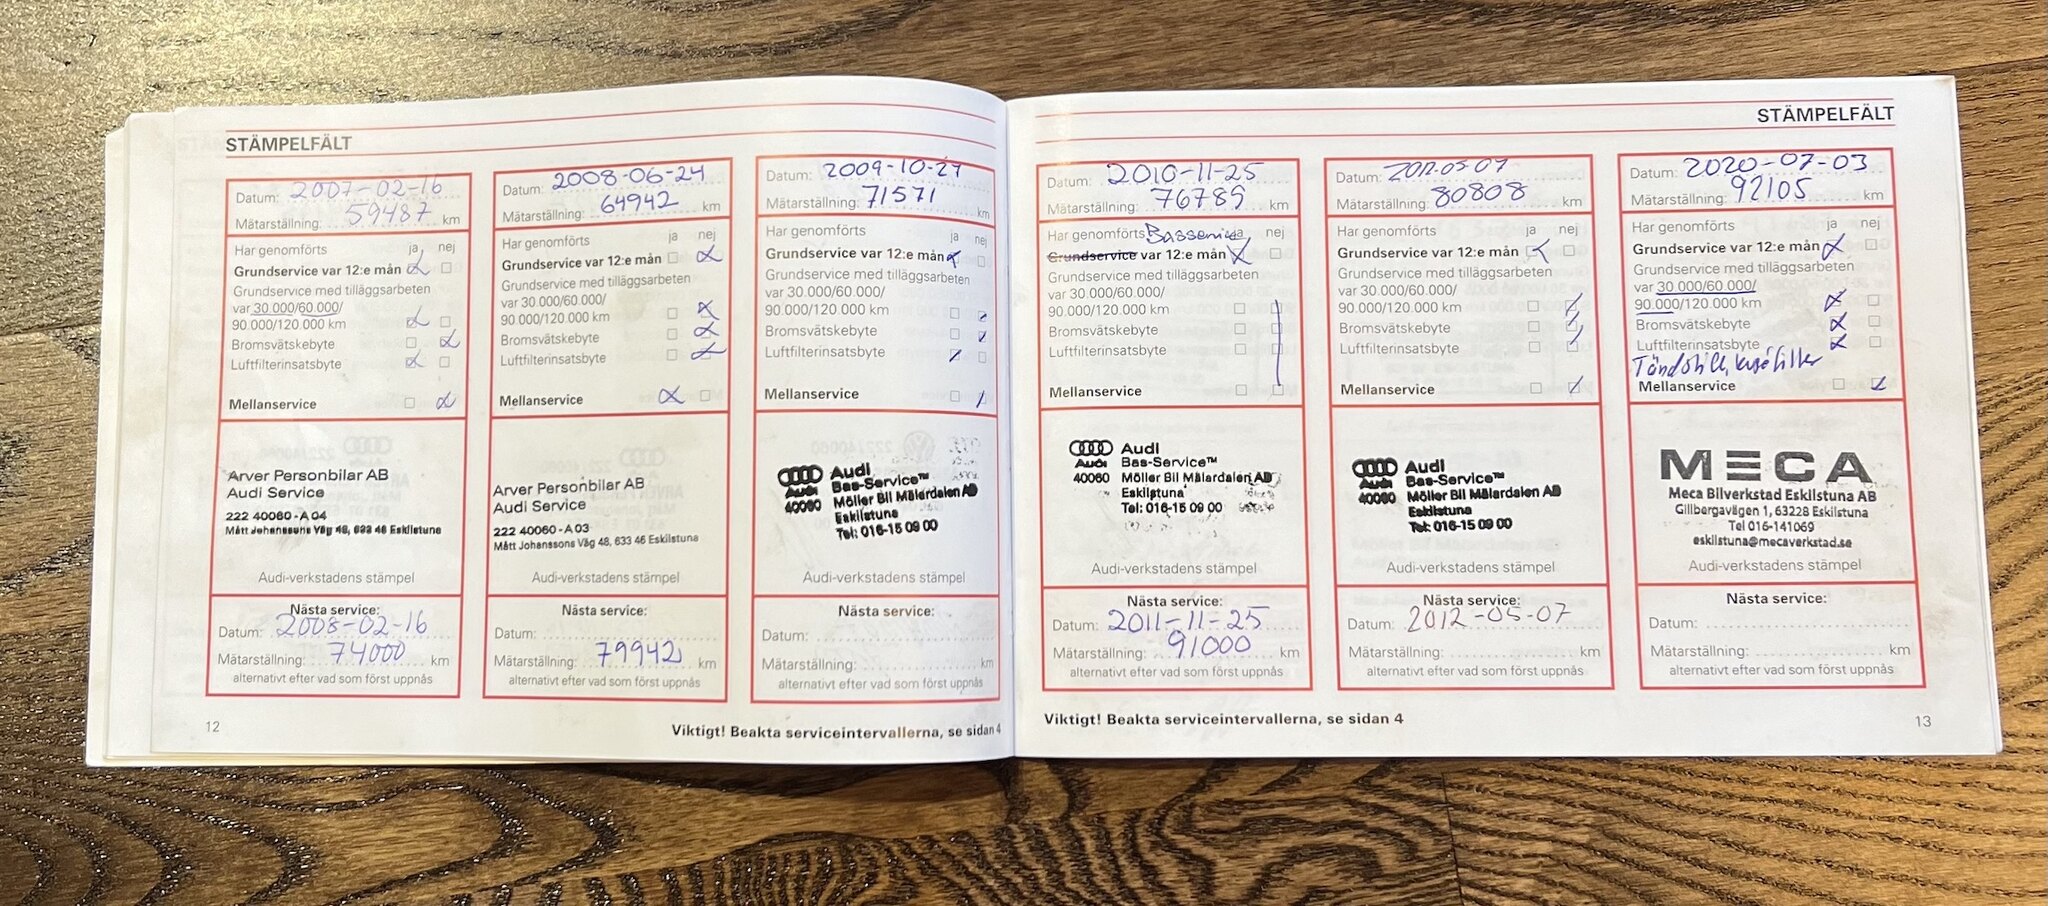 STÄMPELFÄLT
Datum: 2007-02-16
Mätarställning: 59487 km
Har genomförts ja nej
Grundservice var 12:e mån
Grundservice med tilläggsarbeten
var 30.000/60.000/
90.000/120.000 km
Bromsvätskebyte
Luftfilterinsatsbyte
Mellanservice
Arver Personbilar AB
Audi Service
222 40060 - A 04
Mått Johanssons Väg 48, 633 46 Eskilstuna
Audi-verkstadens stämpel
Nästa service:
Datum: 2008-02-16
Mätarställning: 74000 km
alternativt efter vad som först uppnås
Datum: 2008-06-24
Mätarställning: 64942 km
Har genomförts ja nej
Grundservice var 12:e mån
Grundservice med tilläggsarbeten
var 30.000/60.000/
90.000/120.000 km
Bromsvätskebyte
Luftfilterinsatsbyte
Mellanservice
Arver Personbilar AB
Audi Service
222 40060 - A 03
Mått Johanssons Väg 48, 633 46 Eskilstuna
Audi-verkstadens stämpel
Nästa service:
Datum:
Mätarställning: 79942 km
alternativt efter vad som först uppnås
Datum: 2009-10-27
Mätarställning: 71571 km
Har genomförts ja nej
Grundservice var 12:e mån
Grundservice med tilläggsarbeten
var 30.000/60.000/
90.000/120.000 km
Bromsvätskebyte
Luftfilterinsatsbyte
Mellanservice
Audi
Audi Bas-Service™
40060 Möller Bil Mälardalen AB
Eskilstuna
Tel: 016-15 09 00
Audi-verkstadens stämpel
Nästa service:
Datum:
Mätarställning: km
alternativt efter vad som först uppnås
12
Viktigt! Beakta serviceintervallerna, se sidan 4
STÄMPELFÄLT
Datum: 2010-11-25
Mätarställning: 76789 km
Har genomförts Basservice ja nej
Grundservice var 12:e mån
Grundservice med tilläggsarbeten
var 30.000/60.000/
90.000/120.000 km
Bromsvätskebyte
Luftfilterinsatsbyte
Mellanservice
Audi
Audi Bas-Service™
40060 Möller Bil Mälardalen AB
Eskilstuna
Tel: 016-15 09 00
Audi-verkstadens stämpel
Nästa service:
Datum: 2011-11-25
Mätarställning: 91000 km
alternativt efter vad som först uppnås
Datum:
Mätarställning: 80808 km
Har genomförts ja nej
Grundservice var 12:e mån
Grundservice med tilläggsarbeten
var 30.000/60.000/
90.000/120.000 km
Bromsvätskebyte
Luftfilterinsatsbyte
Mellanservice
Audi
Audi Bas-Service™
40060 Möller Bil Mälardalen AB
Eskilstuna
Tel: 016-15 09 00
Audi-verkstadens stämpel
Nästa service:
Datum: 2012-05-07
Mätarställning: km
alternativt efter vad som först uppnås
Datum: 2020-07-03
Mätarställning: 92105 km
Har genomförts ja nej
Grundservice var 12:e mån
Grundservice med tilläggsarbeten
var 30.000/60.000/
90.000/120.000 km
Bromsvätskebyte
Luftfilterinsatsbyte
Mellanservice
MECA
Meca Bilverkstad Eskilstuna AB
Gillbergavägen 1, 63228 Eskilstuna
Tel 016-141069
eskilstuna@mecaverkstad.se
Audi-verkstadens stämpel
Nästa service:
Datum:
Mätarställning: km
alternativt efter vad som först uppnås
Viktigt! Beakta serviceintervallerna, se sidan 4
13